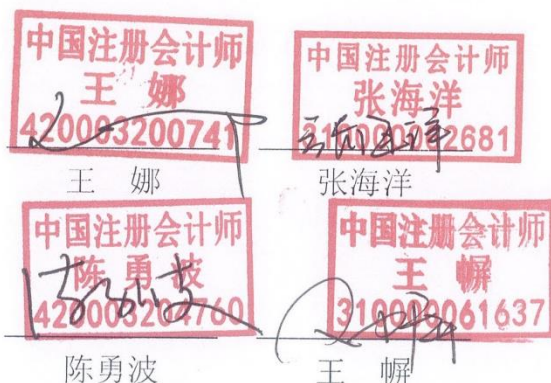 中国注册会计师
王 娜
420003200741
王 娜
中国注册会计师
张海洋
张海洋
中国注册会计师
陈勇波
420003204760
陈勇波
中国注册会计师
王 幈
310000061637
王 幈